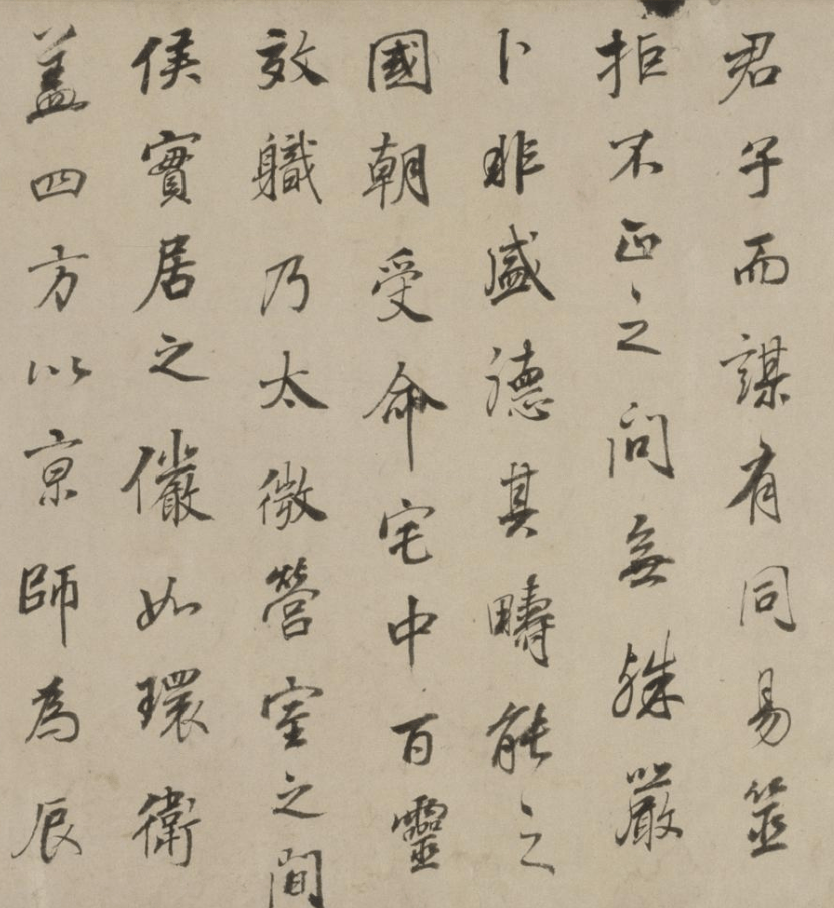 君子而謀有同易筮
拒不正之问無殊嚴
卜非盛德其疇能之
國朝受命宅中百靈
效職乃太微營室之間
侯實居之儼如環衛
蓋四方以京師為辰